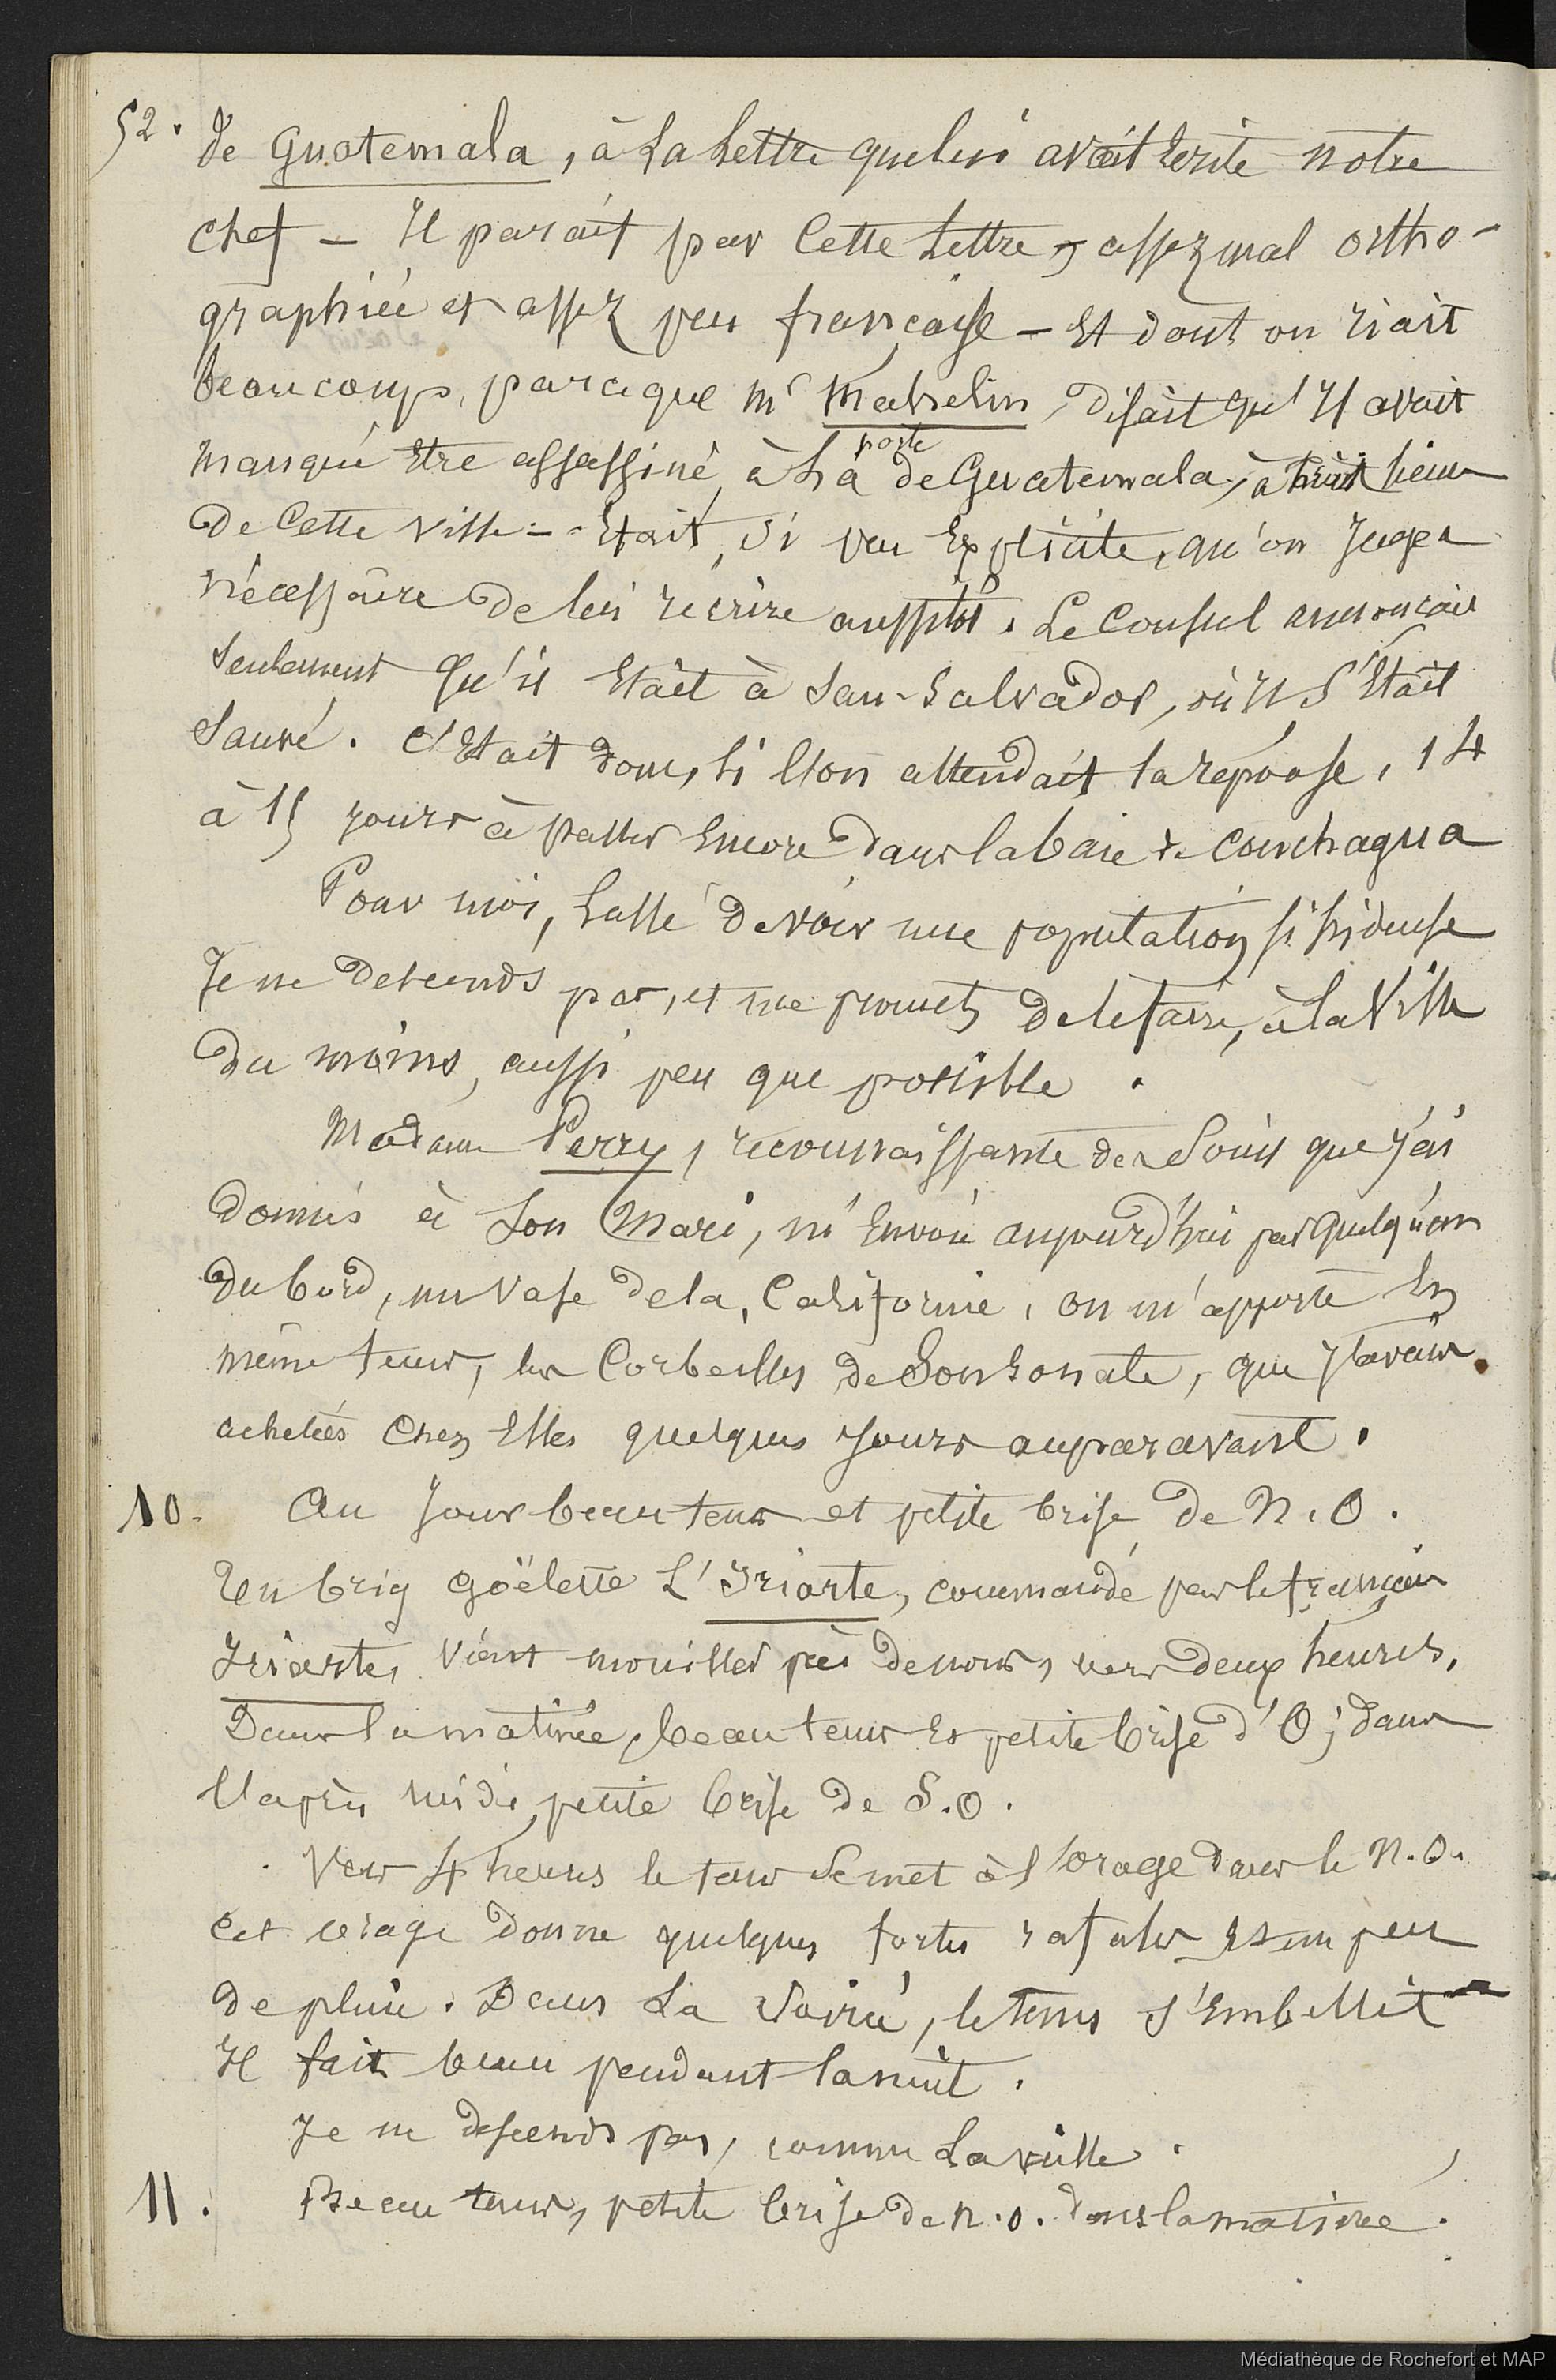 52.
de Guatemala, à la lettre que lui avait écrite notre
chef — Il parait par cette lettre, assez mal ortho-
graphiée et assez peu française — et dont on riait
beaucoup, parceque Mr Mahelin, disait qu'Il avait
manqué être assassiné, à la porte de Guatemala, à huit lieues
de cette ville — était, si peu Explicite, qu'on Jugea
nécessaire de lui récrire aussitôt. Le Consul annonçait
Seulement qu'il était à San-Salvador, où Il s'Etait
Sauvé. C'Etait donc, si l'on attendait la réponse, 14
à 15 jours à passer Encore dans la baie de Conchagua
Pour moi, lassé de voir une population si hideuse
Je ne descends pas, et me promets de le faire, à la Ville
du moins, aussi peu que possible.
Madame Perry, reconnaissante des Soins que j'ai
donnés à Son Mari, m'Envoie aujourd'hui par quelqu'un
du bord, un vase de la Californie, on m'apporte En
même tems, les Corbeilles de Sonsonate, que j'avais
achetées chez Elles quelques jours auparavant.
10. Au Jour beau tems et petite brise de N.O.
Un brig goëlette L'Iriarte, commandé par le français
Iriarte, vient mouiller près de nous, vers deux heures.
Dans la matinée, beau tems Et petite brise d'O; dans
l'après midi, petite brise de S.O.
Vers 4 heures le tems Se met à l'orage dans le N.O.
cet orage donne quelques fortes rafales Et un peu
de pluie. Dans La Soirée, le tems s'Embellit
Il fait beau pendant la nuit.
Je ne descends pas, comme La veille.
11. Beau tems, petite brise de N.O. dans la matinée.
Médiathèque de Rochefort et MAP